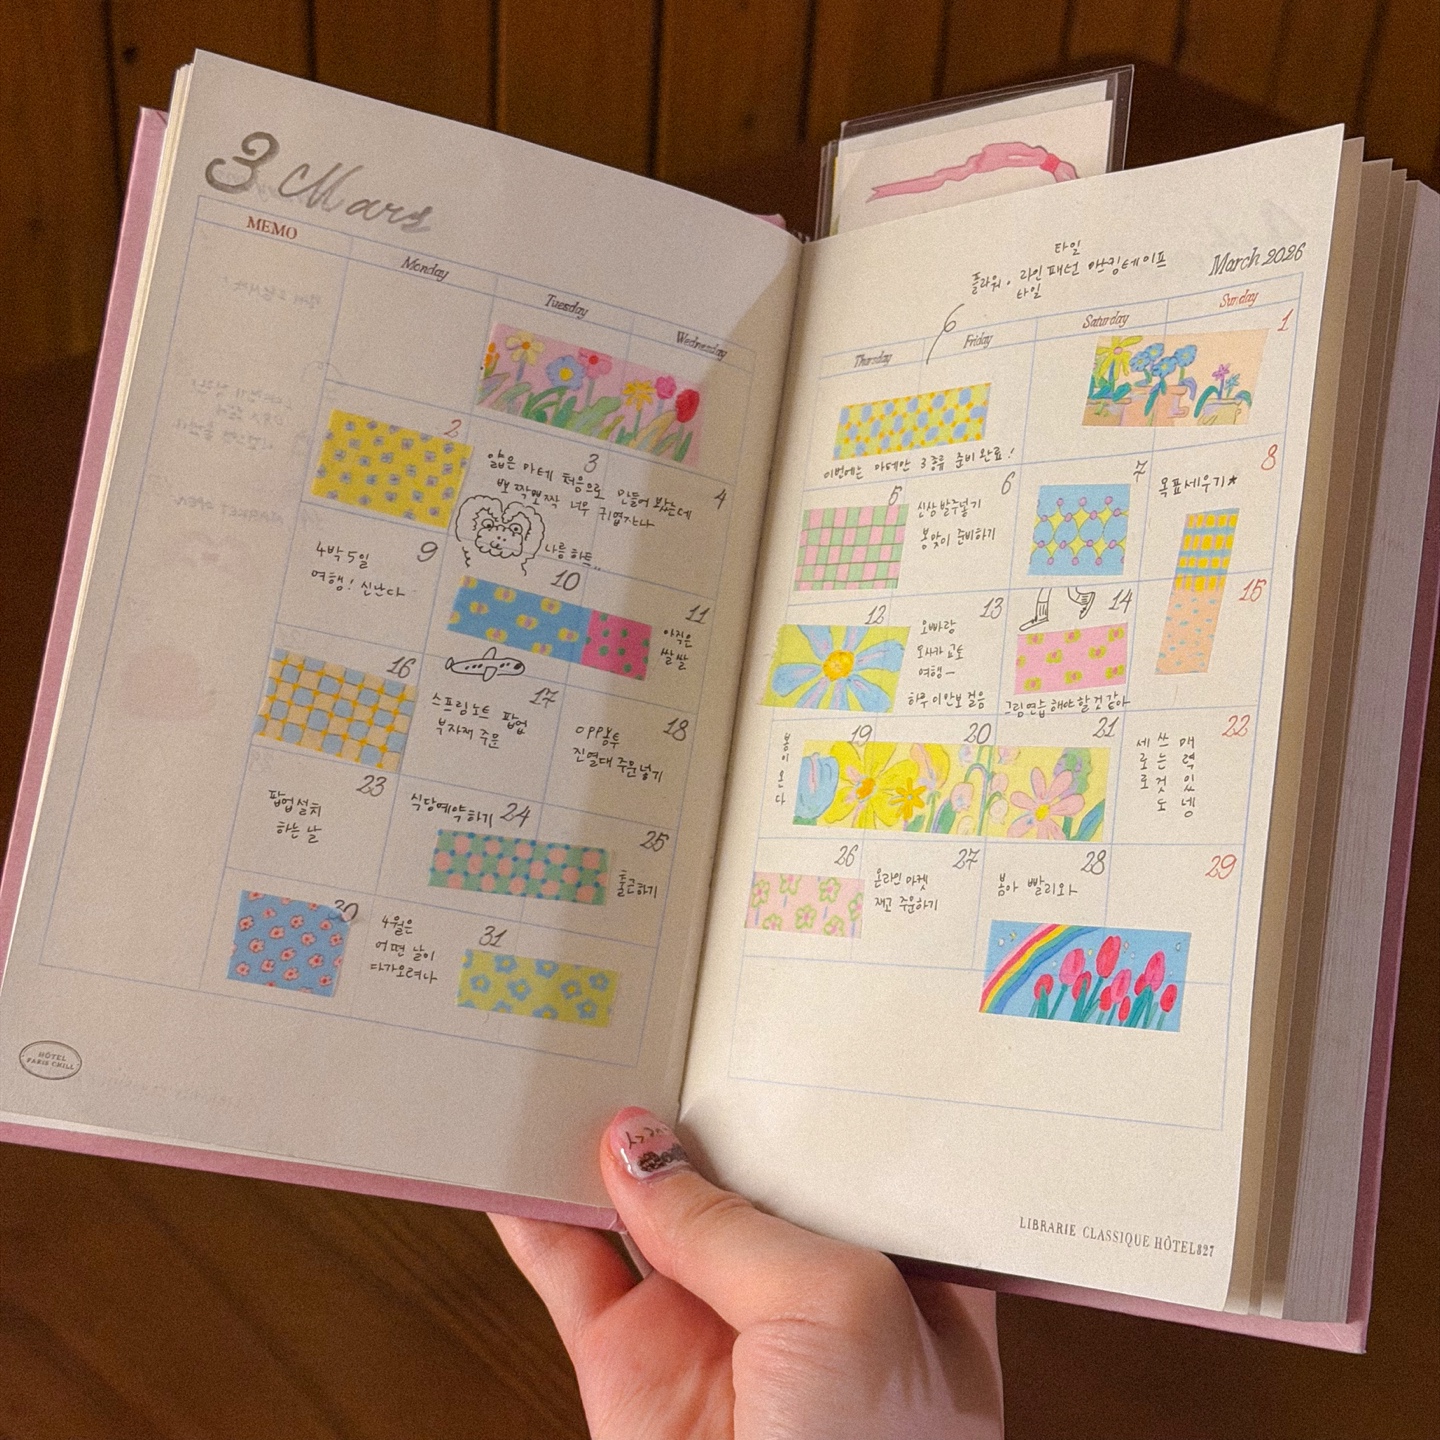 3 Mars
MEMO
Monday
Tuesday
Wednesday
2
3
4
얇은 마테 처음으로 만들어 봤는데
뽀짝뽀짝 너무 귀엽잖나
나름 하트..
9
4박 5일
여행! 신난다
10
11
아직은
쌀쌀
16
17
스프링노트 팝업
부자재 주문
18
OPP봉투
진열대 주문넣기
23
팝업설치
하는 날
24
식당예약하기
25
출근하기
30
4월은
어떤 날이
다가오려나
31
HÔTEL
PARIS CHILL
타일
플라워, 라인 패턴 마스킹테이프
타일
March 2026
Thursday
Friday
Saturday
Sunday
1
이번에는 마테만 3종류 준비 완료!
5
6
신상 발주넣기
봄맞이 준비하기
7
8
목표세우기★
12
13
오빠랑
오사카 교토
여행~
하루 이만보 걸음
14
그림연습 해야 할 것 같아
15
19
봄이 온다
20
21
22
세로로
쓰는 것도
매력 있넹
26
27
온라인 마켓
재고 주문하기
28
봄아 빨리와
29
LIBRARIE CLASSIQUE HÔTEL827